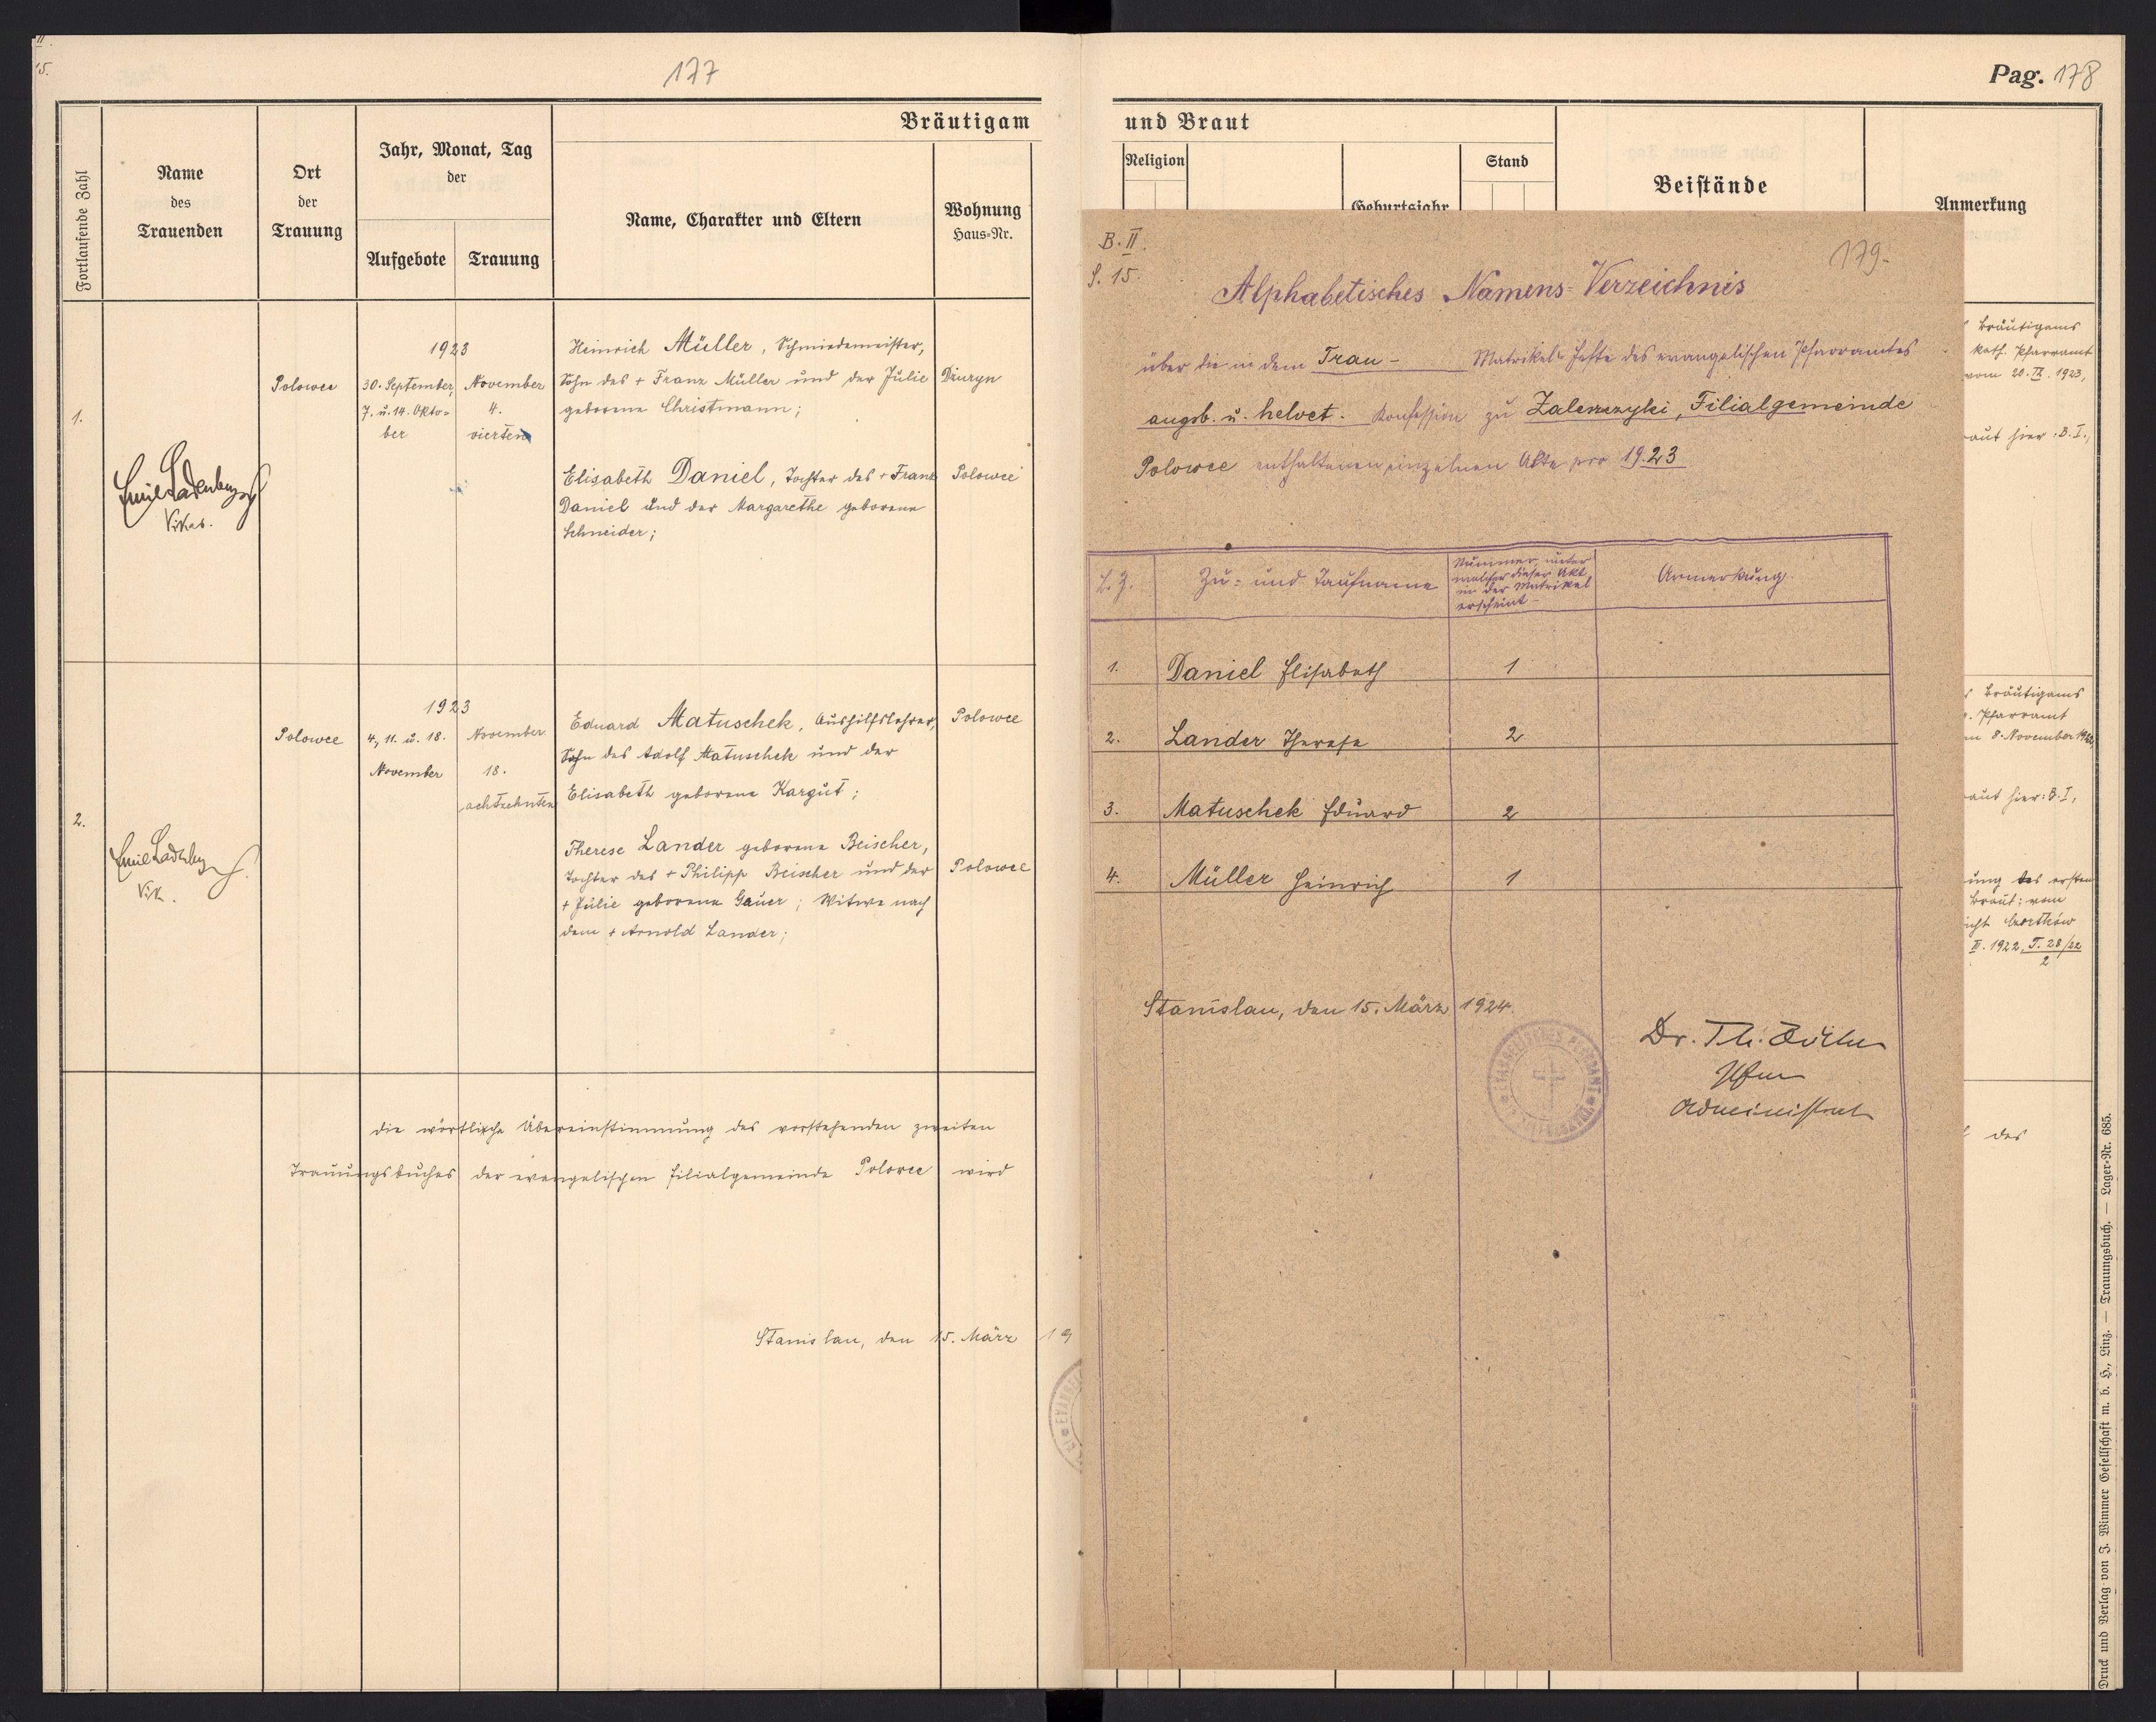 II.
15.
177
Bräutigam
Fortlaufende Zahl
Name
des
Trauenden
Ort
der
Trauung
Jahr, Monat, Tag
der
Aufgebote
Trauung
Name, Charakter und Eltern
Wohnung
Haus-Nr.
1.
Emil Ladenberger
Vikar.
Polowce
1923
30. September,
7. u. 14. Okto-
ber
November
4.
vierten
Heinrich Müller, Schmiedemeister,
Sohn des + Franz Müller und der Julie
geborene Christmann;
Dzuryn
Elisabeth Daniel, Tochter des + Franz
Daniel und der Margarethe geborene
Schneider;
Polowce
2.
Vik.
Polowce
1923
4., 11. u. 18.
November
November
18.
achtzehnten
Eduard Matuschek, Aushilfslehrer,
Sohn des Adolf Matuschek und der
Elisabeth geborene Kargut;
Polowce
Therese Lander geborene Beischer,
Tochter des + Philipp Beischer und der
+ Julie geborene Gauer; Witwe nach
dem + Arnold Lander;
Polowce
die wörtliche Übereinstimmung des vorstehenden zweiten
Trauungsbuches der evangelischen Filialgemeinde Polowce wird
Stanislau, den 15. März 19
Pag. 178
und Braut
Religion
Geburtsjahr
Stand
Beistände
Anmerkung
Bräutigams
kath. Pfarramt
vom 20. IX. 1923,
aut hier: B. I.,
Bräutigams
Pfarramt
8. November 1923,
aut hier: B. I,
ung des ersten
Braut: vom
icht Czortków
II. 1922, T. 28/22
2
des
B. II.
S. 15.
179.
Alphabetisches Namens-Verzeichnis
über die in dem Trau- Matrikel-Hefte des evangelischen Pfarramtes
augsb. u. helvet. Konfession zu Zaleszczyki, Filialgemeinde
Polowce enthaltenen einzelnen Akte pro 1923
L. Z.
Zu- und Taufname
Nummer, unter
welcher dieser Akt
in der Matrikel
erscheint
Anmerkung.
1. Daniel Elisabeth 1
2. Lander Therese 2
3. Matuschek Eduard 2
4. Müller Heinrich 1
Stanislau, den 15. März 1924.
EVANGELISCHES PFARRAMT
Dr. Th. Zöckler
Pfarr
Administrat
Druck und Verlag von J. Wimmer Gesellschaft m. b. H., Linz. — Trauungsbuch. — Lager-Nr. 685.